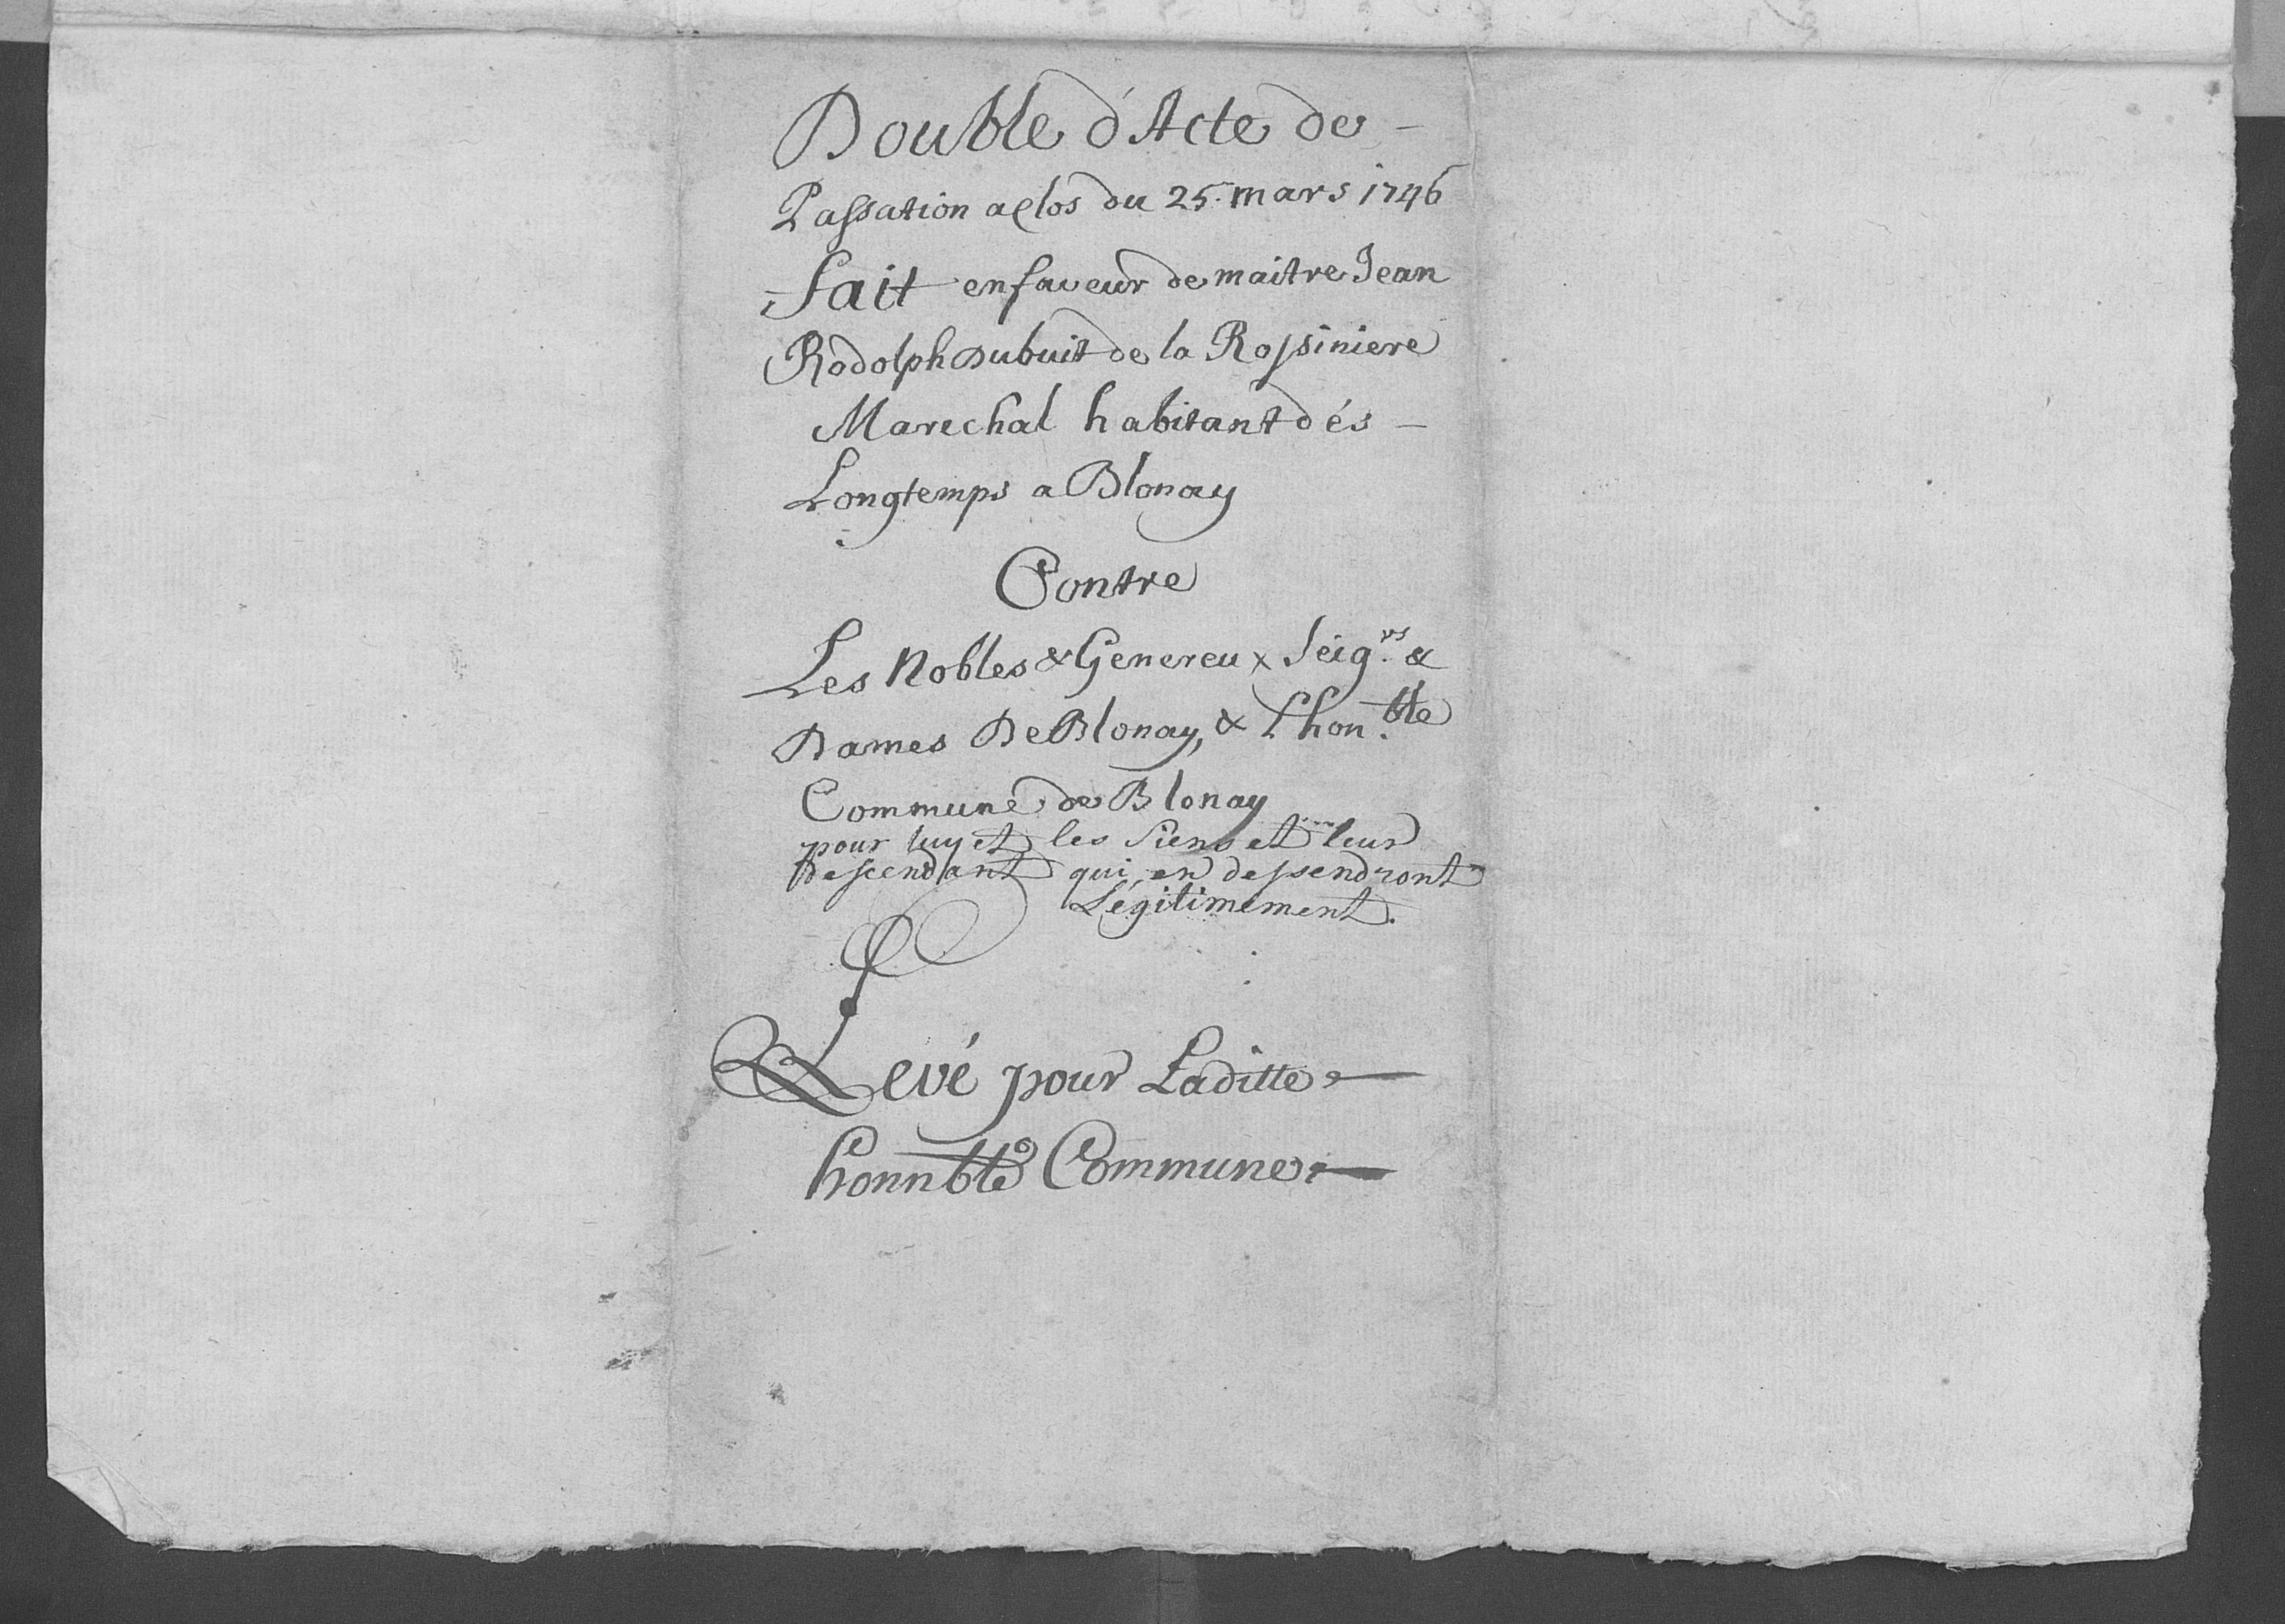 Double d'Acte de -
Passation a Clos du 25. mars 1746
fait en faveur de maitre Jean
Rodolph Dubuit de la Rossiniere
Marechal habitant dés -
Longtemps a Blonay
Contre
Les Nobles & Genereux Seig.rs &
Dames De Blonay, & Lhon.ble
Commune de Blonay
pour luy et les siens et leur
descendant qui, en dessendront
Legitimement.
Levé pour Laditte
honnble Commune